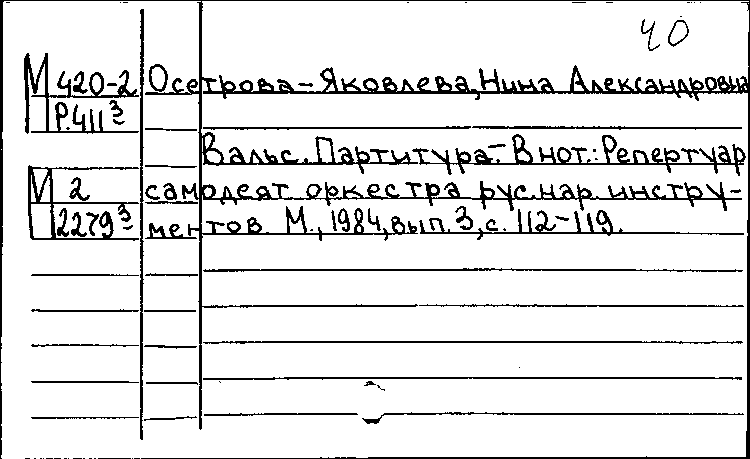 40
М 420-2 Осетрова-Яковлева, Нина Александровна
Р.411³
Вальс. Партитура.- В нот.: Репертуар
М 2 самодеят. оркестра рус. нар. инстру-
2279³ ментов. М., 1984, вып. 3, с. 112-119.